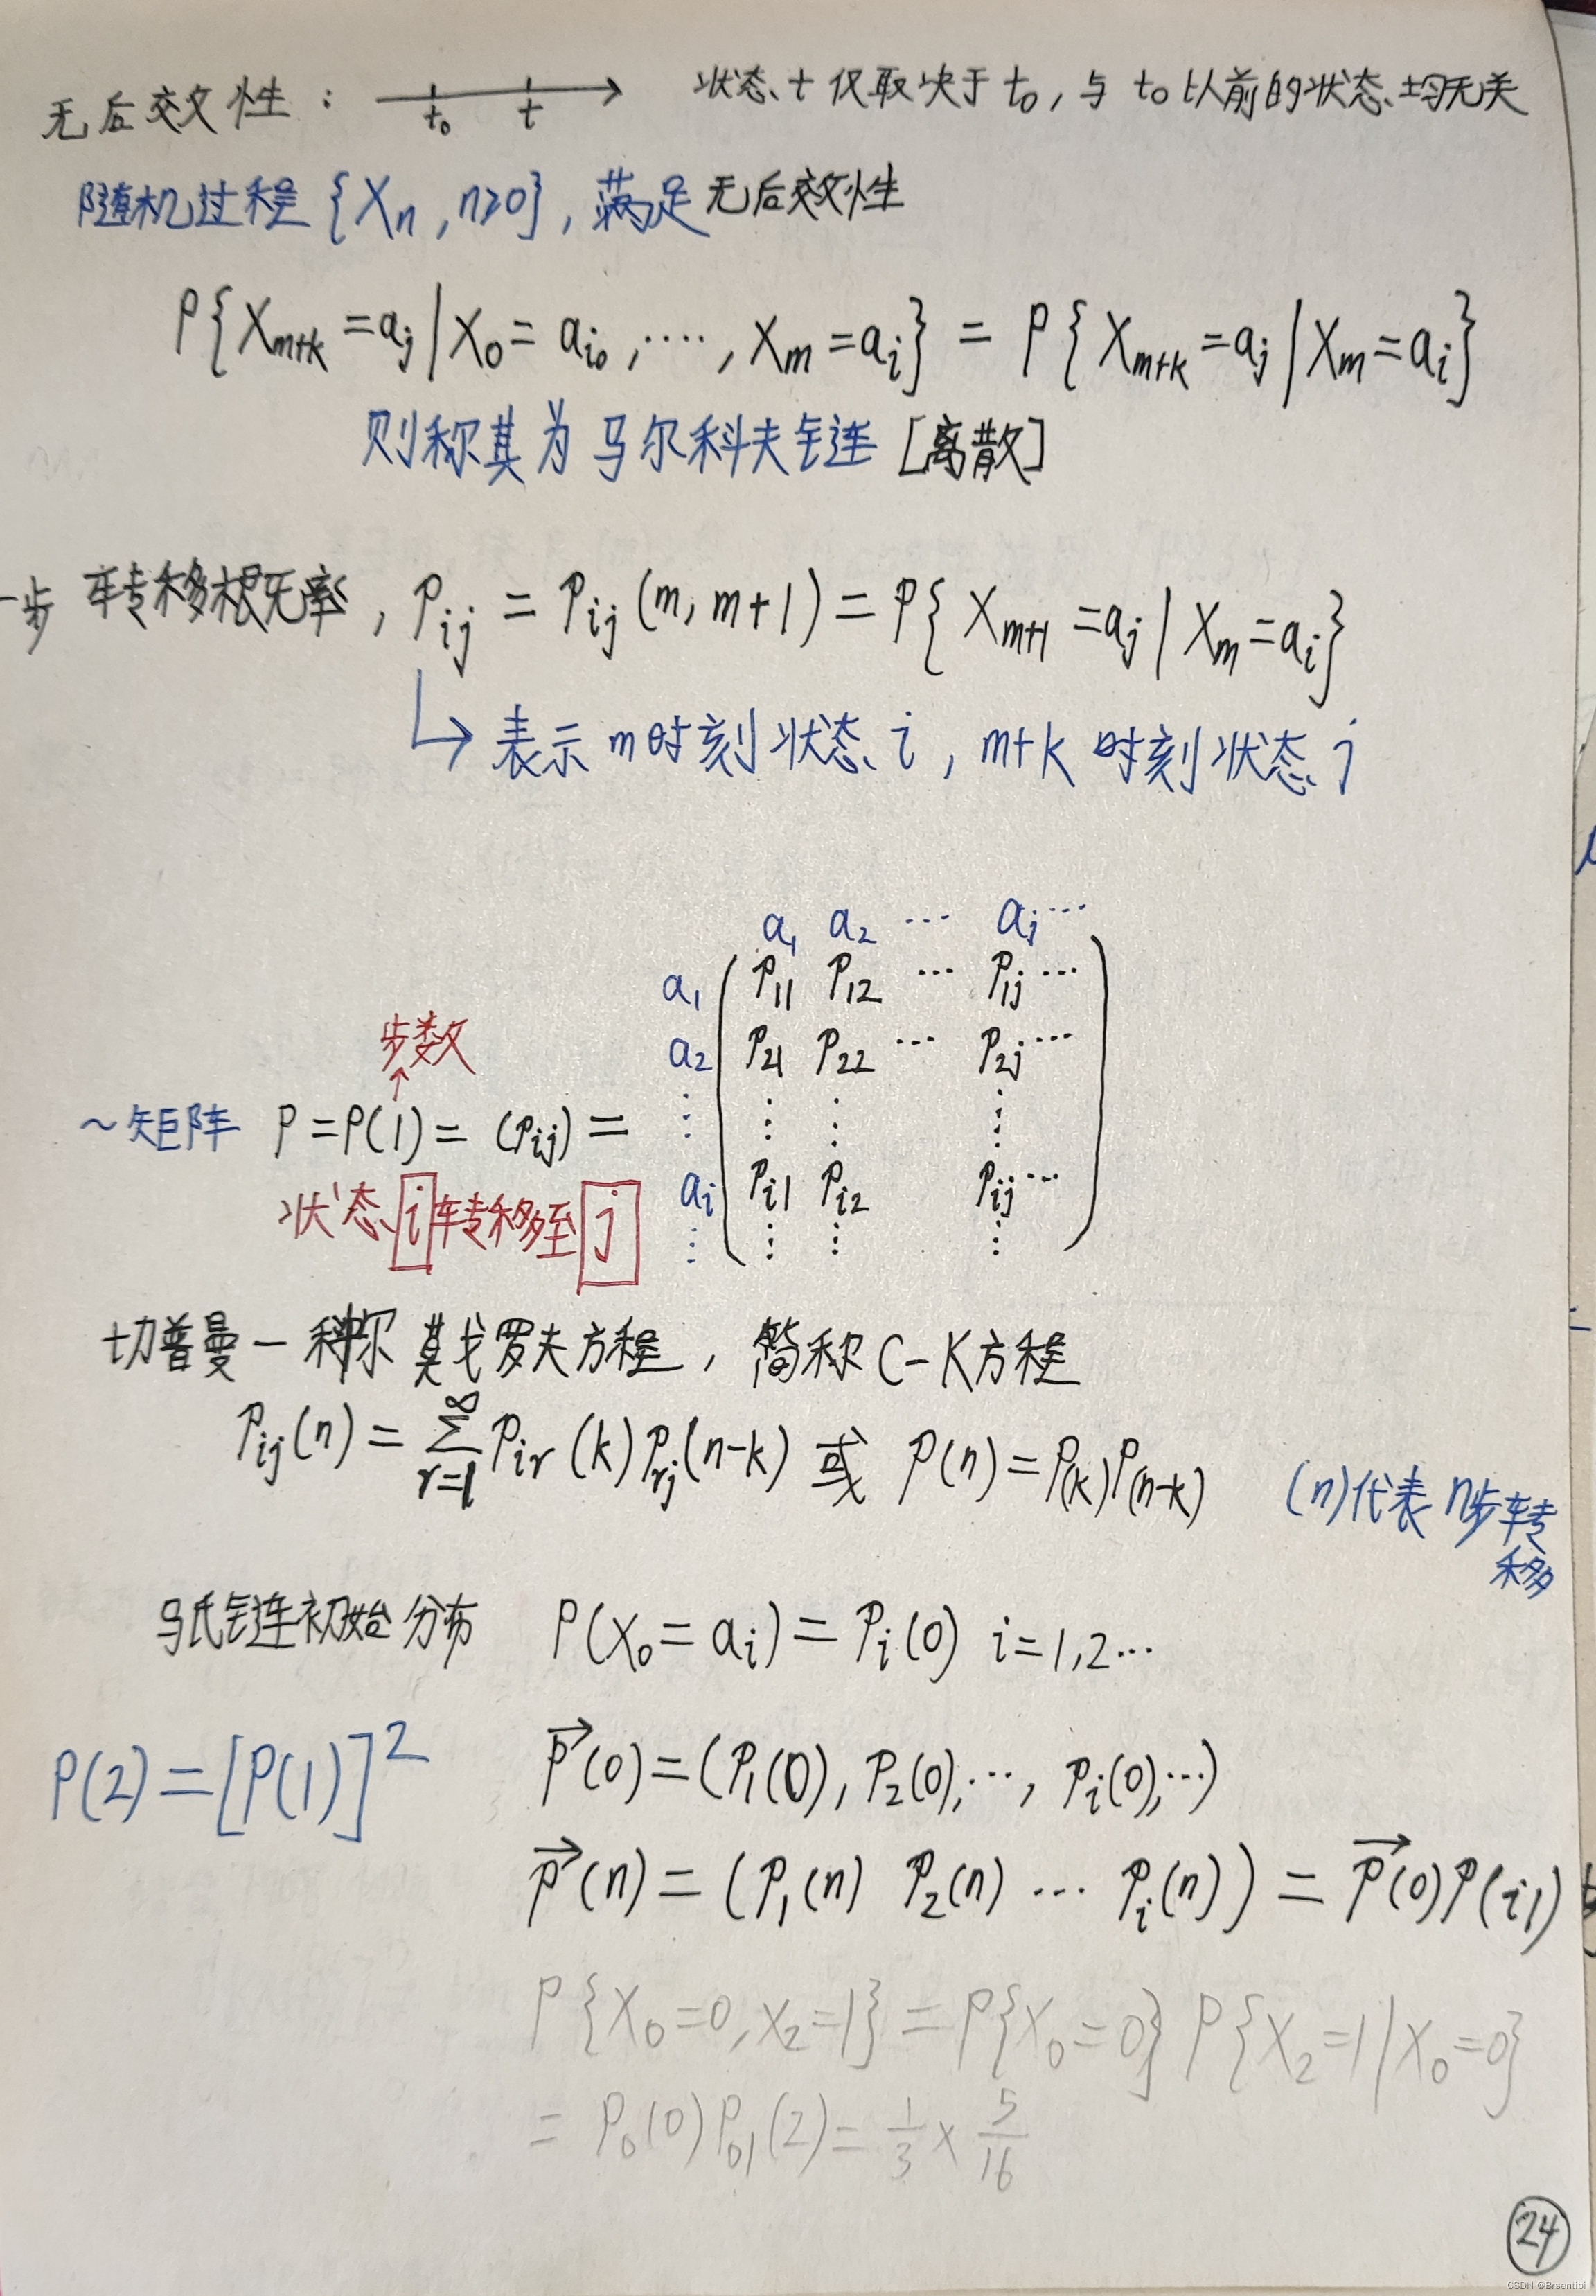 无后效性： t₀ t 状态t仅取决于t₀, 与t₀以前的状态均无关
随机过程{Xn, n≥0}, 满足无后效性
P{X_{m+k}=a_j|X_0=a_{i_0},····,X_m=a_i}=P{X_{m+k}=a_j|X_m=a_i}
则称其为马尔科夫链[离散]
一步转移概率, P_{ij}=P_{ij}(m,m+1)=P{X_{m+1}=a_j|X_m=a_i}
↳表示m时刻状态i, m+k时刻状态j
a₁ a₂ ··· a_j ···
a₁ P₁₁ P₁₂ ··· P_{1j} ···
步数
a₂ P₂₁ P₂₂ ··· P_{2j} ···
~矩阵 P=P(1)=(P_{ij})= ⋮ ⋮ ⋮ ⋮
状态i转移至j a_i P_{i1} P_{i2} P_{ij} ···
⋮ ⋮ ⋮ ⋮
切普曼-科尔莫戈罗夫方程, 简称C-K方程
P_{ij}(n)=∑_{r=1}^{∞}P_{ir}(k)P_{rj}(n-k) 或 P(n)=P(k)P(n-k) (n)代表n步转
移
马氏链初始分布 P(X_0=a_i)=P_i(0) i=1,2···
P(2)=[P(1)]² P⃗(0)=(P₁(0),P₂(0),···,P_i(0),···)
P⃗(n)=(P₁(n) P₂(n) ··· P_i(n))=P⃗(0)P(i1)
P{X_0=0,X_2=1}=P{X_0=0}P{X_2=1|X_0=0}
=P_0(0)P_{01}(2)=1/3×5/16
24
CSDN @Brsentibi